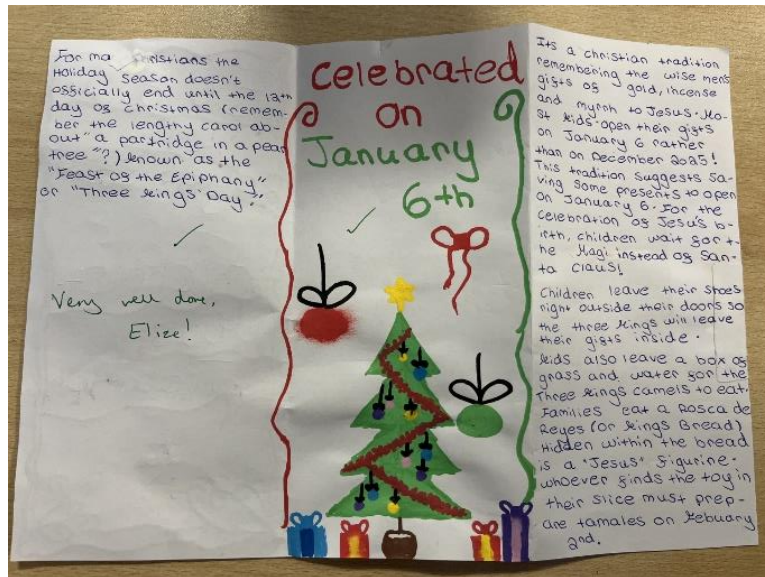 For ma Christians the
Holiday season doesn't
officially end until the 12th
day of christmas (remem-
ber the lengthy carol ab-
out "a partridge in a pear
tree"?) known as the
"Feast of the Epiphany"
or "Three Kings' Day."
Very well done,
Elize!
Celebrated
on
January
6th
Its a christian tradition
remembering the wise men's
gifts of gold, incense
and myrrh to Jesus. Mo-
st kids open their gifts
on January 6 rather
than on December 2025!
This tradition suggests sa-
ving some presents to open
on January 6. For the
celebration of Jesus's b-
irth, children wait for t-
he Magi instead of San-
ta Claus!
Children leave their shoes
right outside their doors so
the three kings will leave
their gifts inside.
kids also leave a box of
grass and water for the
Three kings camels to eat.
Families eat a Rosca de
Reyes (or kings Bread)
Hidden within the bread
is a "Jesus" figurine.
whoever finds the toy in
their slice must prep-
are tamales on Febuary
2nd.